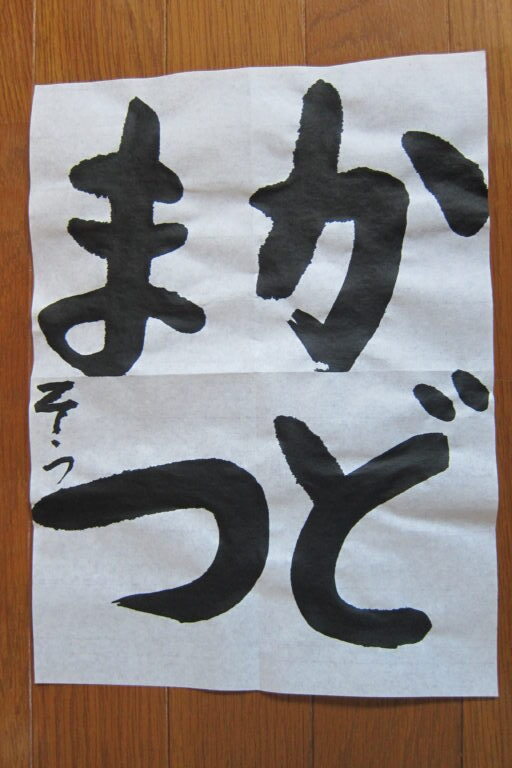 かど
まつ
そう